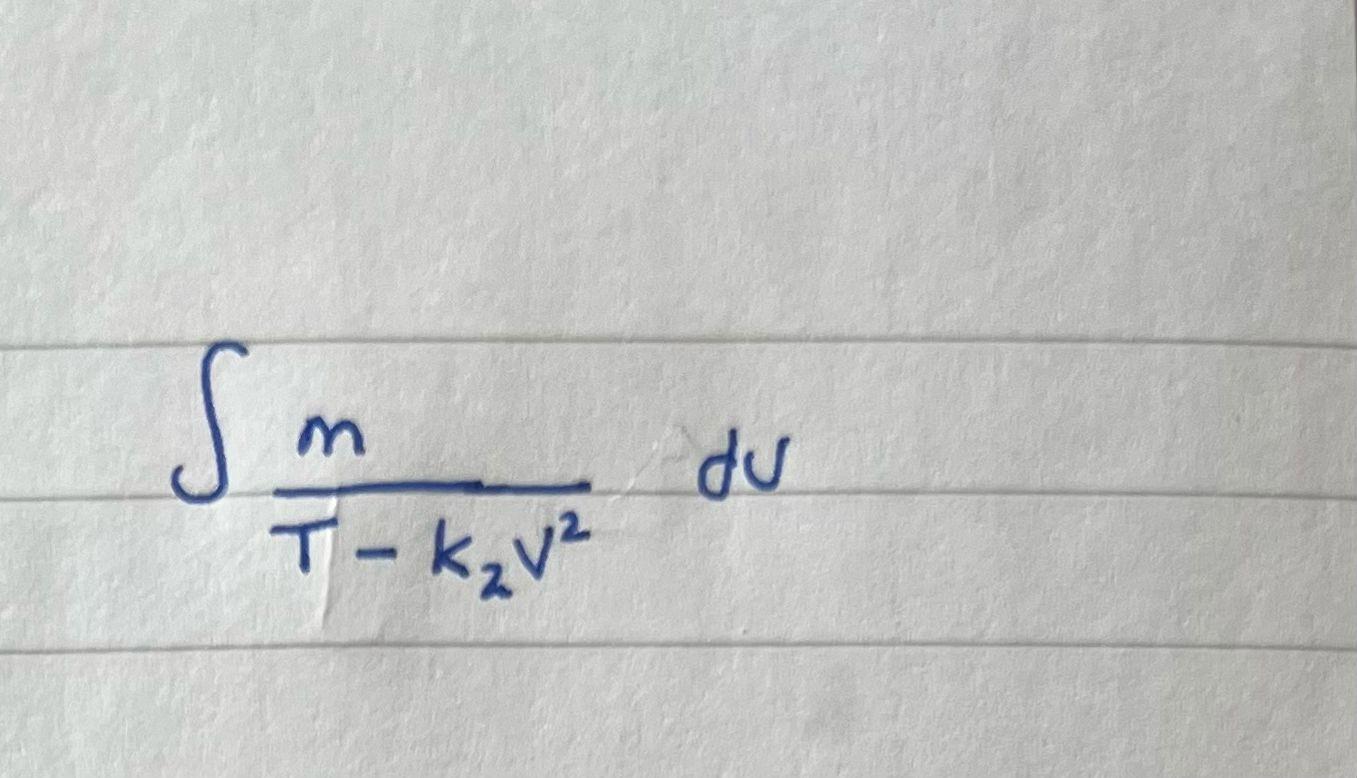 ∫ m / (T - k₂v²) dv